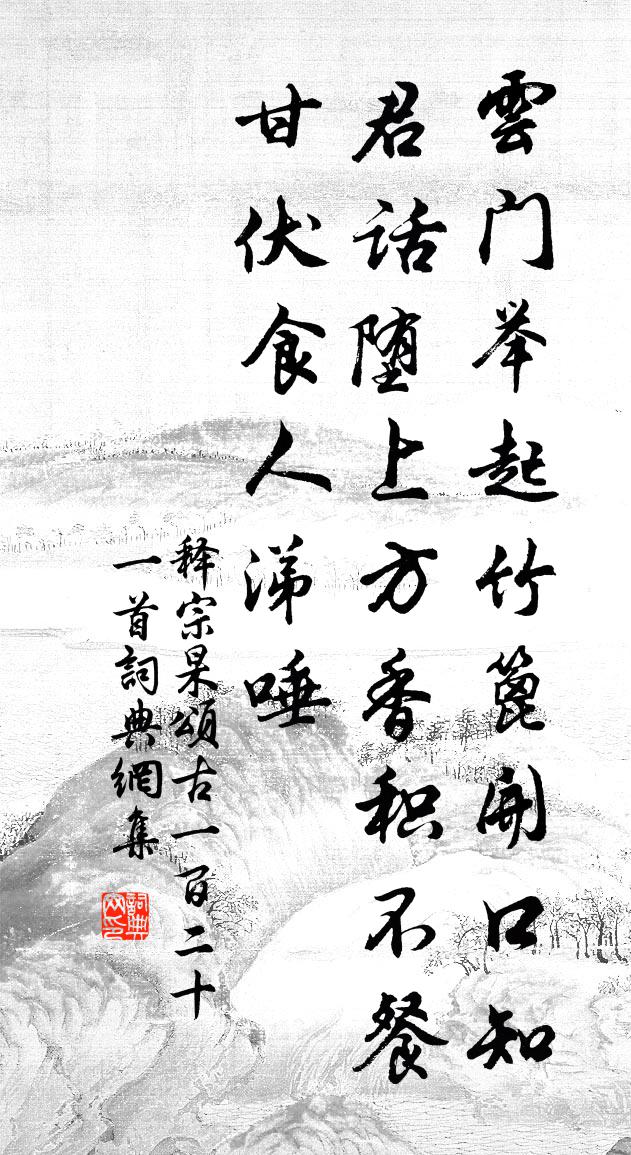 雲门举起竹篦開口知
君话堕上方香积不餐
甘伏食人涕唾
释宗杲頌古一百二十
一首詞典網集
詞典网印